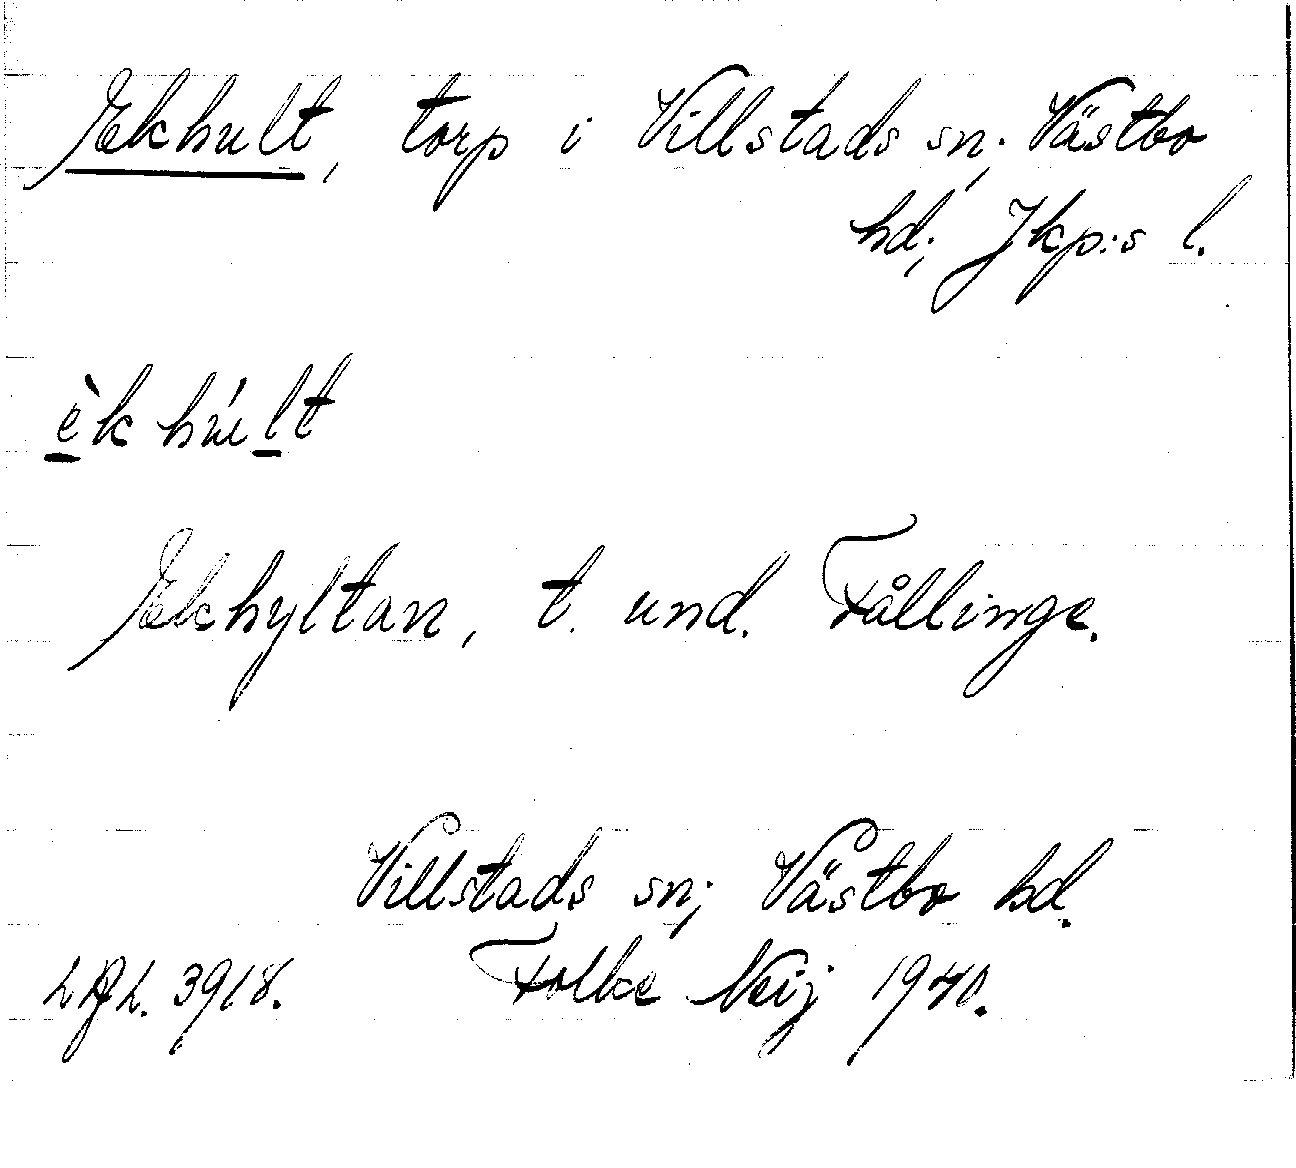 Ekhult, torp i Villstads sn; Västbo
hd; Jkp:s l.
èk húlt
Ekhyltan, t. und. Fållinge.
Villstads sn; Västbo hd.
3918. Folke Neij 1940.